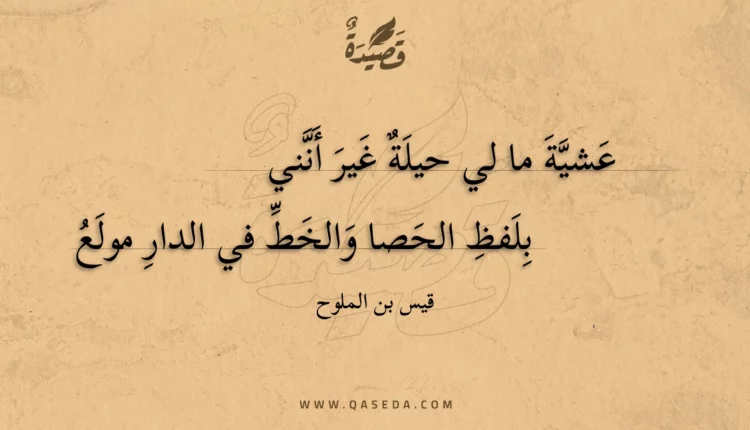 قَصِيدَةٌ
عَشيَّةَ ما لي حيلَةٌ غَيرَ أَنَّني
بِلَفظِ الحَصا وَالخَطِّ في الدارِ مولَعُ
قيس بن الملوح
WWW.QASEDA.COM